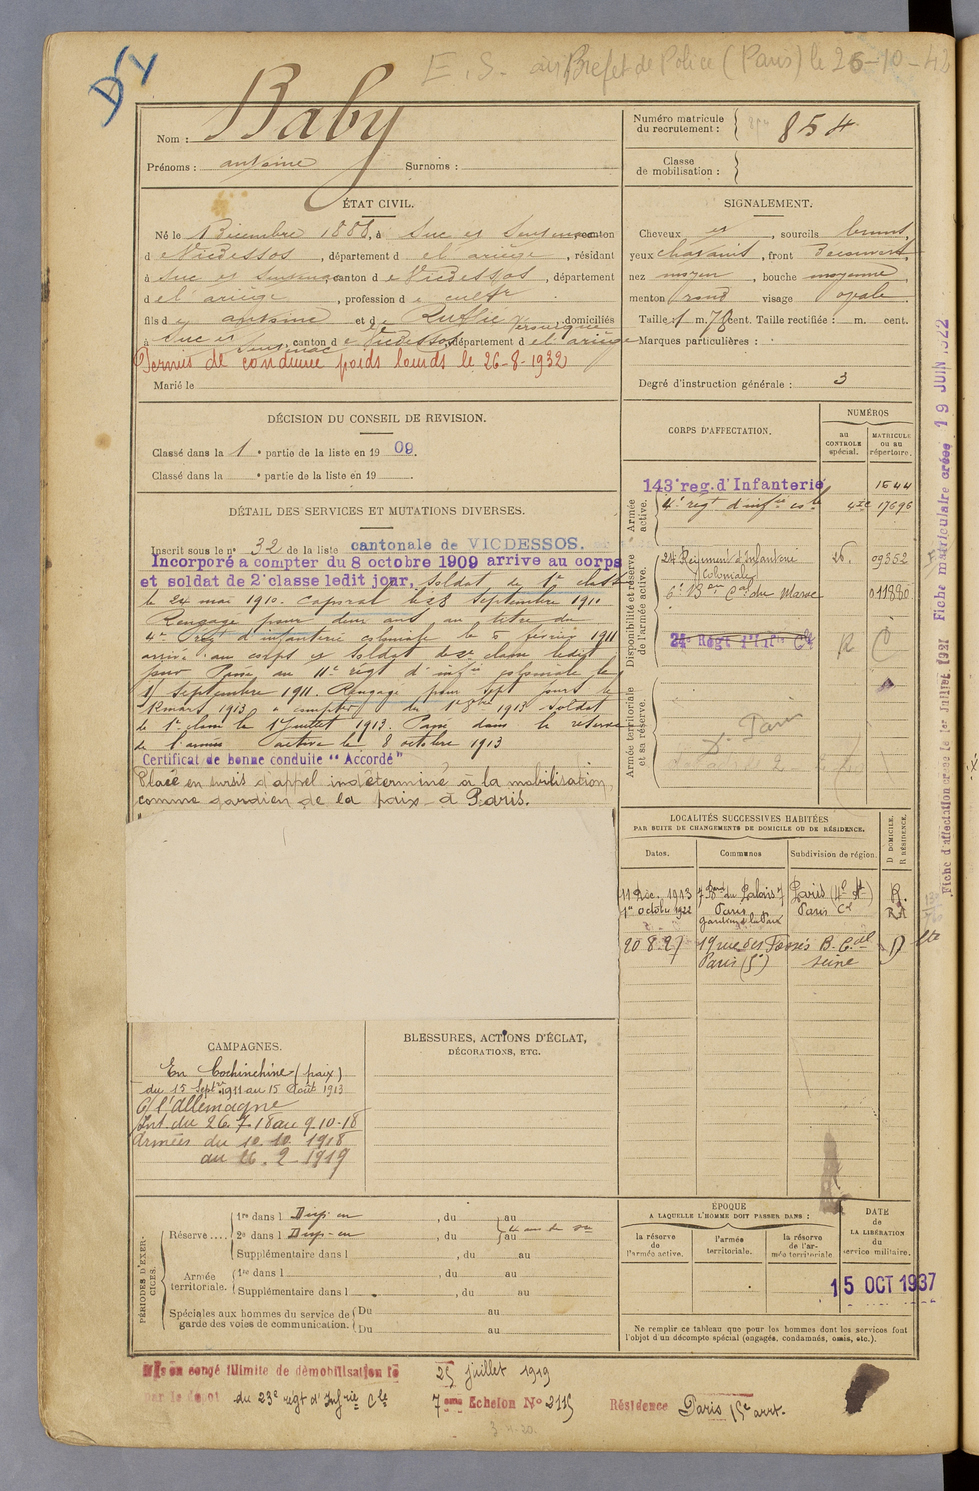 D4
E. S. au Préfet de Police (Paris) le 26-10-42
Nom : Baby
Prénoms : antoine Surnoms :
Numéro matricule du recrutement : 854
Classe de mobilisation :
ÉTAT CIVIL.
Né le 1 Décembre 1888, à Suc et Sentenac canton
d e Vicdessos, département d el ariège, résidant
à Suc et Sentenac, canton d e Vicdessos, département
d el ariège, profession d e cultr
fils d antoine et d e Ruffié Véronique domiciliés
à Suc et Sentenac, canton d e Vicdessos, département d el ariège
Permis de conduire poids lourds le 26-8-1932
Marié le
SIGNALEMENT.
Cheveux et, sourcils bruns,
yeux chatains, front Découvert
nez moyen, bouche moyenne
menton rond visage ovale
Taille 1 m. 78 cent. Taille rectifiée : m. cent.
Marques particulières :
Degré d'instruction générale : 3
DÉCISION DU CONSEIL DE REVISION.
Classé dans la 1 e partie de la liste en 1909.
Classé dans la e partie de la liste en 19
DÉTAIL DES SERVICES ET MUTATIONS DIVERSES.
Inscrit sous le n° 32 de la liste cantonale de VICDESSOS.
Incorporé a compter du 8 octobre 1909 arrive au corps
et soldat de 2e classe ledit jour, soldat de 1e classe
le 24 mai 1910. Caporal le 28 septembre 1910
Rengagé pour deux ans au titre du
4e Régt d'infanterie coloniale le 6 février 1911
arrivé au corps et soldat de 2e classe ledit
jour Passé au 11e régt d'infie coloniale le
1 septembre 1911. Rengagé pour sept jours le
12 mars 1913 à compter du 1er 8bre 1913 soldat
de 1e classe le 1 juillet 1913. Passé dans la réserve
de l'armée active le 8 octobre 1913
Certificat de bonne conduite "Accordé"
Placé en sursis d'appel indéterminé à la mobilisation
comme gardien de la paix à Paris.
CORPS D'AFFECTATION.
NUMÉROS
au CONTROLE spécial.
MATRICULE ou au répertoire.
Armée active.
143e reg. d'Infanterie 1544
4e régt d'infie cole 17696
Disponibilité et réserve de l'armée active.
24 Régiment d'Infanterie Coloniale 26. 09352
6e Bon Cal du Maroc 011880
24e Régt d'Infie Cle R C
Armée territoriale et sa réserve.
LOCALITÉS SUCCESSIVES HABITÉES
PAR SUITE DE CHANGEMENTS DE DOMICILE OU DE RÉSIDENCE.
Dates. Communes Subdivision de région. D DOMICILE. R RÉSIDENCE.
11 Déc. 1913 7 Bard du Palais Paris (4e At) R.
1er octobre 1922 Paris Paris Cal RA
gardien de la Paix
20 8 27 19 rue des Fossés B. Cal D
Paris (5e) Seine
CAMPAGNES.
En Cochinchine (paix)
du 15 Septre 1911 au 15 Août 1913
C/ l'Allemagne
Int du 26.7.18 au 9.10.18
Armées du 10.10.1918
au 26.2.1919
BLESSURES, ACTIONS D'ÉCLAT,
DÉCORATIONS, ETC.
PÉRIODES D'EXERCICES.
Réserve .... 1re dans l Disp. en, du au
2e dans l Disp. en, du au
Supplémentaire dans l, du au
Armée territoriale. 1re dans l, du au
Supplémentaire dans l, du au
Spéciales aux hommes du service de garde des voies de communication. Du au
Du au
ÉPOQUE
A LAQUELLE L'HOMME DOIT PASSER DANS :
la réserve de l'armée active.
l'armée territoriale.
la réserve de l'armée territoriale.
DATE de LA LIBÉRATION du service militaire.
15 OCT 1937
Ne remplir ce tableau que pour les hommes dont les services font
l'objet d'un décompte spécial (engagés, condamnés, omis, etc.).
Mis en congé illimité de démobilisation le 25 juillet 1919
par le dépôt du 23e régt d'Infrie Cle 7eme Echelon N° 2115 Résidence Paris 15e arrt.
3.4.20.
Fiche d'affectation créée le 1er Juillet 1921 Fiche matriculaire créée 19 JUIN 1922